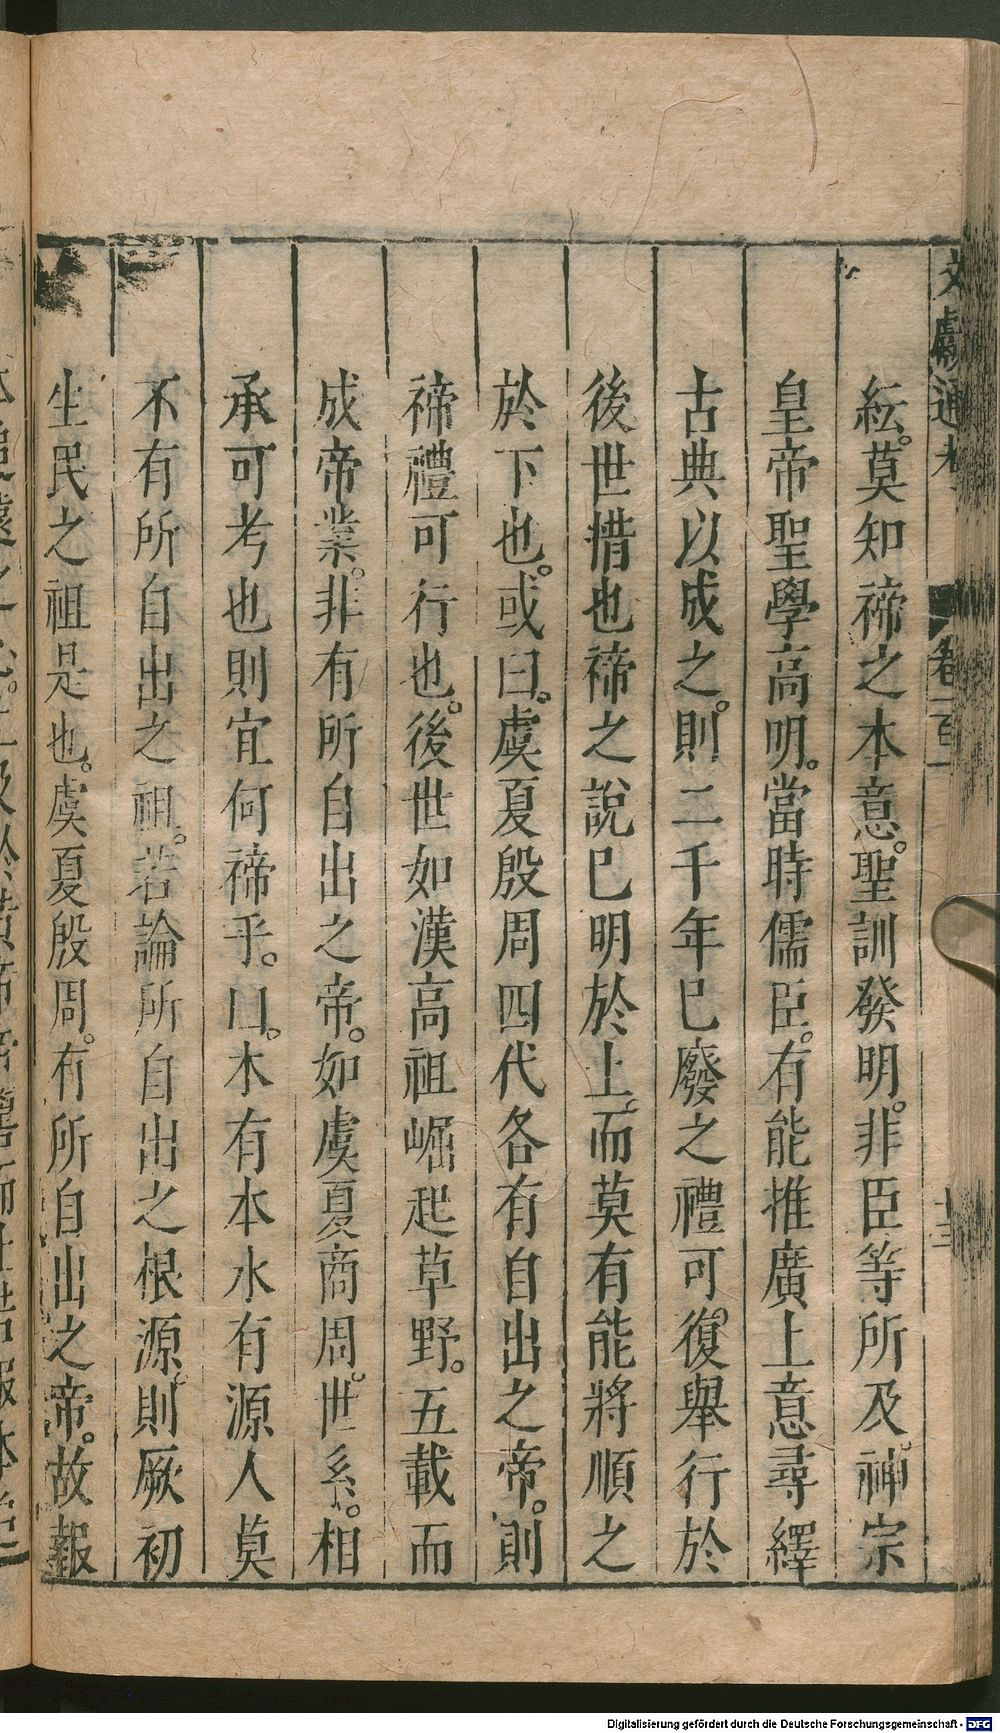 文獻通考 卷一百一 十三
紜。莫知禘之本意。聖訓發明。非臣等所及。神宗
皇帝聖學高明。當時儒臣。有能推廣上意尋繹
古典以成之。則二千年已廢之禮可復舉行於
後世惜也禘之說已明於上。而莫有能將順之
於下也。或曰。虞夏殷周四代各有自出之帝。則
禘禮可行也。後世如漢高祖崛起草野。五載而
成帝業。非有所自出之帝。如虞夏商周。世系。相
承可考也則宜何禘乎。曰。木有本水有源人莫
不有所自出之祖。若論所自出之根源。則厥初
生民之祖是也。虞夏殷周。有所自出之帝。故報
Digitalisierung gefördert durch die Deutsche Forschungsgemeinschaft - DFG